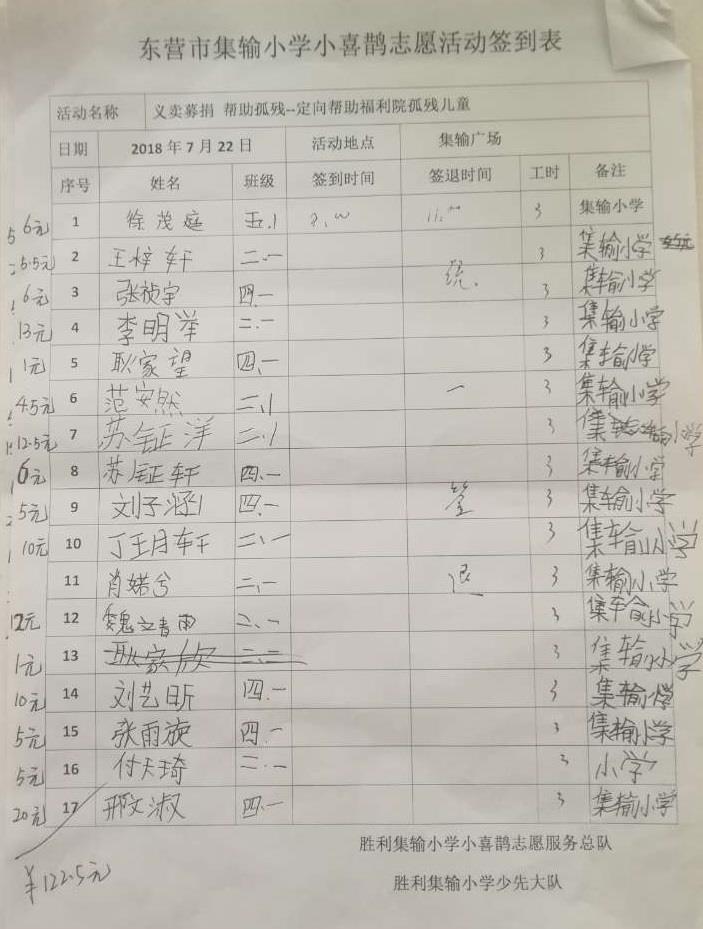 东营市集输小学小喜鹊志愿活动签到表
活动名称 义卖募捐 帮助孤残--定向帮助福利院孤残儿童
日期 2018年7月22日 活动地点 集输广场
序号 姓名 班级 签到时间 签退时间 工时 备注
6元 1 徐茂庭 五.1 3 集输小学
5.5元 2 王梓轩 二.一 3 集输小学
6元 3 张祯宇 四.一 统. 3 集输小学
13元 4 李明举 二.一 3 集输小学
1元 5 耿家望 四.一 3 集输小学
4.5元 6 范安然 二.1 一 3 集输小学
12.5元 7 苏钲洋 二.1 3 集输小学
6元 8 苏钲轩 四.一 3 集输小学
5元 9 刘子涵 四.一 签 3 集输小学
10元 10 丁玥轩 二.一 3 集输小学
11 肖婼兮 二.一 退 3 集输小学
12元 12 魏文青雨 二.一 3 集输小学
1元 13 耿家欣 二.二 3 集输小学
10元 14 刘艺昕 四.一 3 集输小学
5元 15 张雨旋 四.一 3 集输小学
5元 16 付天琦 二.一 3 小学
20元 17 邢文淑 四.一 3 集输小学
胜利集输小学小喜鹊志愿服务总队
¥122.5元
胜利集输小学少先大队